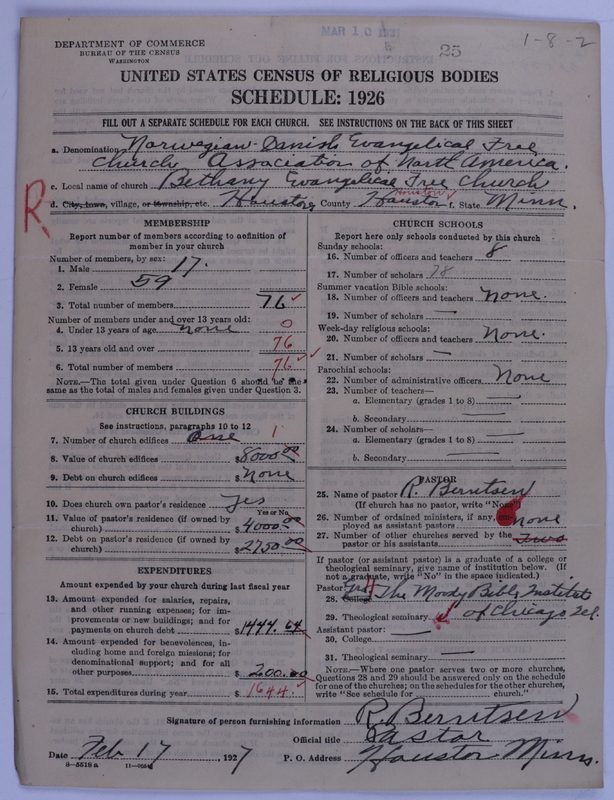 MAR 10 1927
25
1-8-2
DEPARTMENT OF COMMERCE
BUREAU OF THE CENSUS
WASHINGTON
UNITED STATES CENSUS OF RELIGIOUS BODIES
SCHEDULE: 1926
FILL OUT A SEPARATE SCHEDULE FOR EACH CHURCH. SEE INSTRUCTIONS ON THE BACK OF THIS SHEET
a. Denomination Norwegian-Danish Evangelical Free
Church Association of North America.
c. Local name of church Bethany Evangelical Free Church
R
d. City, town, village, or township, etc. Houston, County Houston Houston f. State Minn.
MEMBERSHIP
Report number of members according to definition of
member in your church
Number of members, by sex:
1. Male 17.
2. Female 59
3. Total number of members 76 ✓
Number of members under and over 13 years old:
4. Under 13 years of age none 0
5. 13 years old and over 76
6. Total number of members 76 ✓ ✓
NOTE.—The total given under Question 6 should be the
same as the total of males and females given under Question 3.
CHURCH BUILDINGS
See instructions, paragraphs 10 to 12
7. Number of church edifices one 1
8. Value of church edifices $8000 00
9. Debt on church edifices $None
10. Does church own pastor's residence Yes
Yes or No
11. Value of pastor's residence (if owned by
church) $4000 00
12. Debt on pastor's residence (if owned by
church) $2750 00
EXPENDITURES
Amount expended by your church during last fiscal year
13. Amount expended for salaries, repairs,
and other running expenses; for im-
provements or new buildings; and for
payments on church debt $1444.64
14. Amount expended for benevolences, in-
cluding home and foreign missions; for
denominational support; and for all
other purposes $200.00
15. Total expenditures during year $1644 ✓
CHURCH SCHOOLS
Report here only schools conducted by this church
Sunday schools:
16. Number of officers and teachers 8
17. Number of scholars 78
Summer vacation Bible schools:
18. Number of officers and teachers None.
19. Number of scholars —
Week-day religious schools:
20. Number of officers and teachers None.
21. Number of scholars —
Parochial schools:
22. Number of administrative officers None
23. Number of teachers—
a. Elementary (grades 1 to 8) —
b. Secondary —
24. Number of scholars—
a. Elementary (grades 1 to 8) —
b. Secondary —
PASTOR
25. Name of pastor R. Berntsen
(If church has no pastor, write "None")
26. Number of ordained ministers, if any, em-
ployed as assistants none
27. Number of other churches served by the
pastor or his assistants Two
If pastor (or assistant pastor) is a graduate of a college or
theological seminary, give name of institution below. (If
not a graduate, write "No" in the space indicated.)
Pastor:
28. College The Moody Bible Institute
29. Theological seminary of Chicago Ill.
Assistant pastor: —
30. College
31. Theological seminary —
NOTE.—Where one pastor serves two or more churches,
Questions 28 and 29 should be answered only on the schedule
for one of the churches; on the schedules for the other churches,
write "See schedule for church."
Signature of person furnishing information R. Berntsen
Official title Pastor
Date Feb 17 , 1927 P. O. Address Houston Minn.
8-5518 a